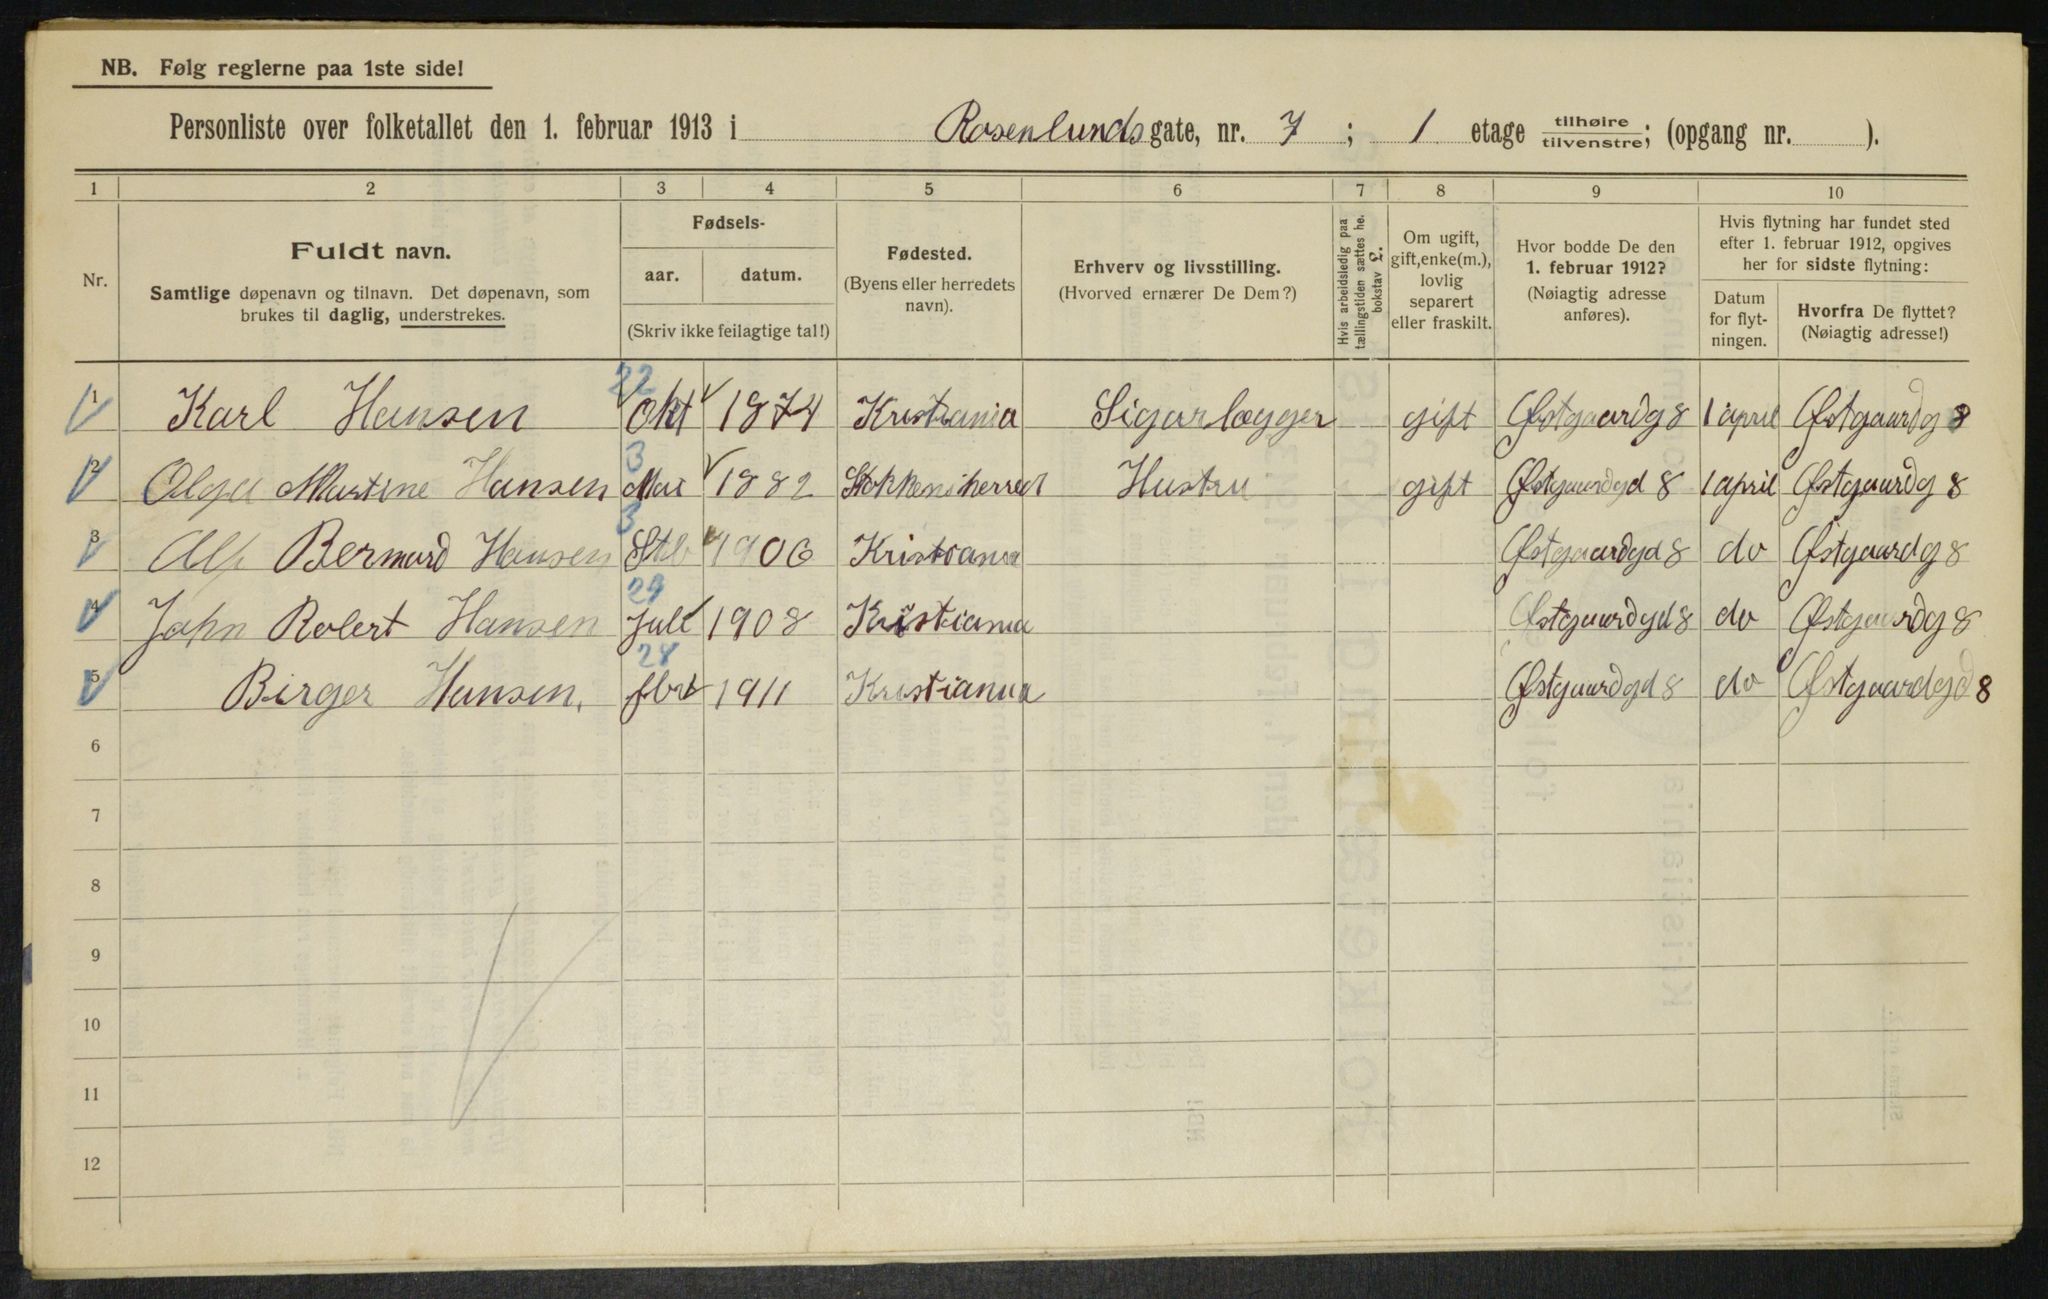 NB. Følg reglerne paa 1ste side!
Personliste over folketallet den 1. februar 1913 i Rosenlunds gate, nr. 7 ; 1 etage tilhøire/tilvenstre; (opgang nr. ).
1 2 3 4 5 6 7 8 9 10
Nr.
Fuldt navn.
Samtlige døpenavn og tilnavn. Det døpenavn, som
brukes til daglig, understrekes.
Fødsels-
aar. datum.
(Skriv ikke feilagtige tal!)
Fødested.
(Byens eller herredets
navn).
Erhverv og livsstilling.
(Hvorved ernærer De Dem?)
Hvis arbeidsledig paa
tællingstiden sættes he.
bokstav L.
Om ugift,
gift, enke(m.),
lovlig
separert
eller fraskilt.
Hvor bodde De den
1. februar 1912?
(Nøiagtig adresse
anføres).
Hvis flytning har fundet sted
efter 1. februar 1912, opgives
her for sidste flytning:
Datum
for flyt-
ningen.
Hvorfra De flyttet?
(Nøiagtig adresse!)
1 Karl Hansen 22 Okt 1874 Kristiania Sigarlægger gift Østgaardg 8 1 april Østgaardg 8
2 Olga Martine Hansen 3 Mai 1882 Stokkensherred Hustru gift Østgaardgd 8 1 april Østgaardg 8
3 Alf Bernard Hansen 3 1906 Kristiania Østgaardgd 8 do Østgaardg 8
4 John Robert Hansen 29 Juli 1908 Kristiania Østgaardgd 8 do Østgaardg 8
5 Birger Hansen. 28 fbr 1911 Kristiania Østgaardgd 8 do Østgaardgd 8
6
7
8
9
10
11
12